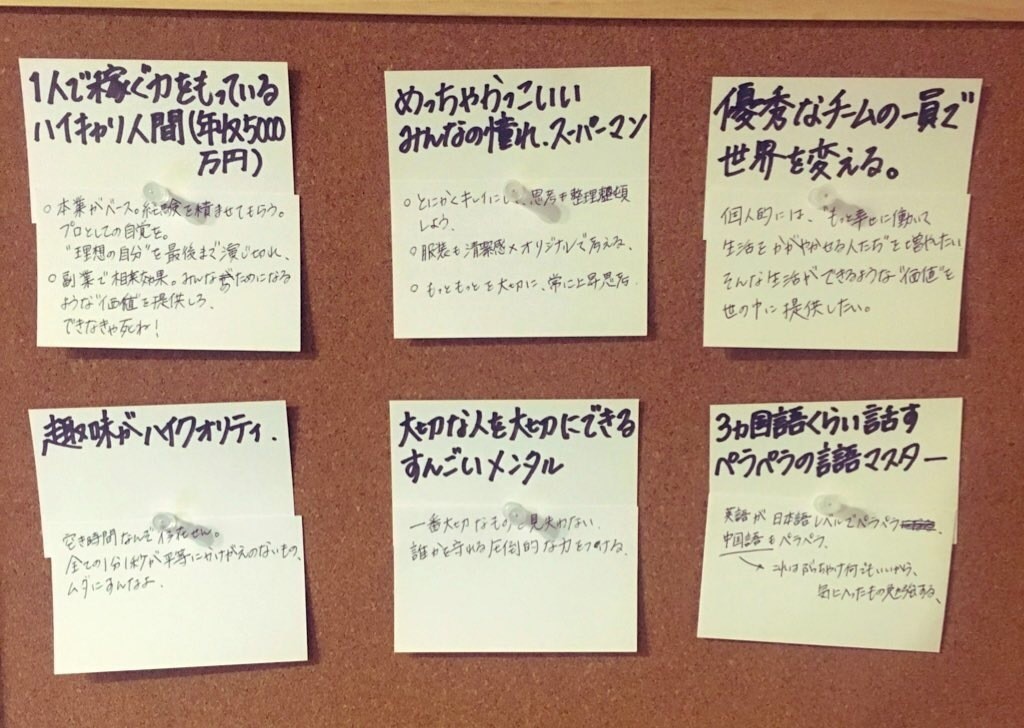 1人で稼ぐ力をもっている
ハイキャリ人間(年収5000
万円)
○本業がベース。経験を積ませてもらう。
プロとしての自覚を。
"理想の自分"を最後まで演じ切れ、
○副業で相乗効果。みんながためになる
ような"価値"を提供しろ、
できなきゃ死ね!
めっちゃかっこいい
みんなの憧れ、スーパーマン
○とにかくキレイにし、思考も整理整頓
しよう、
○服装も清潔感×オリジナルで考える、
○もっともっとを大切に、常に上昇思考、
優秀なチームの一員で
世界を変える。
個人的には、"もっと幸せに働いて
生活をかがやかせる人たち"を増やしたい
そんな生活ができるような"価値"を
世の中に提供したい。
趣味がハイクオリティ.
空き時間なんぞ存在せん。
全ての1分1秒が平等にかけがえのないもの、
ムダにすんなよ.
大切な人を大切にできる
すんごいメンタル
一番大切なものを見失わない.
誰かを守れる圧倒的な力をつける.
3ヵ国語くらい話す
ペラペラの言語マスター
英語が日本語レベルでペラペラ
中国語もペラペラ.
これはぶっちゃけ何でもいいから、
気に入ったもの勉強する、